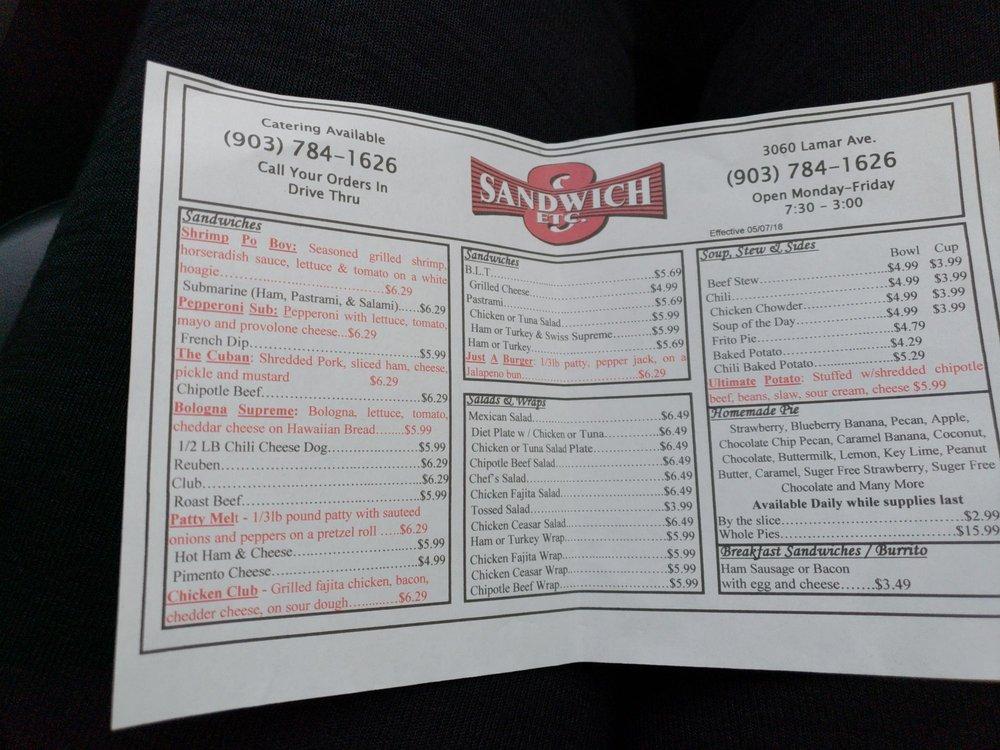 Catering Available
(903) 784-1626
Call Your Orders In
Drive Thru
SANDWICH
S
ETC.
3060 Lamar Ave.
(903) 784-1626
Open Monday-Friday
7:30 - 3:00
Effective 05/07/18
Sandwiches
Shrimp Po Boy: Seasoned grilled shrimp,
horseradish sauce, lettuce & tomato on a white
hoagie..............................$6.29
Submarine (Ham, Pastrami, & Salami).....$6.29
Pepperoni Sub: Pepperoni with lettuce, tomato,
mayo and provolone cheese...$6.29
French Dip..............................$5.99
The Cuban: Shredded Pork, sliced ham, cheese,
pickle and mustard $6.29
Chipotle Beef..............................$6.29
Bologna Supreme: Bologna, lettuce, tomato,
cheddar cheese on Hawaiian Bread........$5.99
1/2 LB Chili Cheese Dog....................$5.99
Reuben..............................$6.29
Club..............................$6.29
Roast Beef..............................$5.99
Patty Melt - 1/3lb pound patty with sauteed
onions and peppers on a pretzel roll .....$6.29
Hot Ham & Cheese..............................$5.99
Pimento Cheese..............................$4.99
Chicken Club - Grilled fajita chicken, bacon,
chedder cheese, on sour dough.............$6.29
Sandwiches
B.L.T..............................$5.69
Grilled Cheese..............................$4.99
Pastrami..............................$5.69
Chicken or Tuna Salad....................$5.99
Ham or Turkey & Swiss Supreme..........$5.99
Ham or Turkey..............................$5.69
Just A Burger: 1/3lb patty, pepper jack, on a
Jalapeno bun..............................$6.29
Salads & Wraps
Mexican Salad..............................$6.49
Diet Plate w / Chicken or Tuna..........$6.49
Chicken or Tuna Salad Plate..........$6.49
Chipotle Beef Salad....................$6.49
Chef's Salad..............................$6.49
Chicken Fajita Salad....................$6.49
Tossed Salad..............................$3.99
Chicken Ceasar Salad....................$6.49
Ham or Turkey Wrap....................$5.99
Chicken Fajita Wrap....................$5.99
Chicken Ceasar Wrap....................$5.99
Chipotle Beef Wrap....................$5.99
Soup, Stew & Sides
Bowl Cup
Beef Stew....................$4.99 $3.99
Chili..............................$4.99 $3.99
Chicken Chowder....................$4.99 $3.99
Soup of the Day....................$4.99 $3.99
Frito Pie..............................$4.79
Baked Potato....................$4.29
Chili Baked Potato....................$5.29
Ultimate Potato: Stuffed w/shredded chipotle
beef, beans, slaw, sour cream, cheese $5.99
Homemade Pie
Strawberry, Blueberry Banana, Pecan, Apple,
Chocolate Chip Pecan, Caramel Banana, Coconut,
Chocolate, Buttermilk, Lemon, Key Lime, Peanut
Butter, Caramel, Suger Free Strawberry, Suger Free
Chocolate and Many More
Available Daily while supplies last
By the slice..............................$2.99
Whole Pies..............................$15.99
Breakfast Sandwiches / Burrito
Ham Sausage or Bacon
with egg and cheese.......$3.49